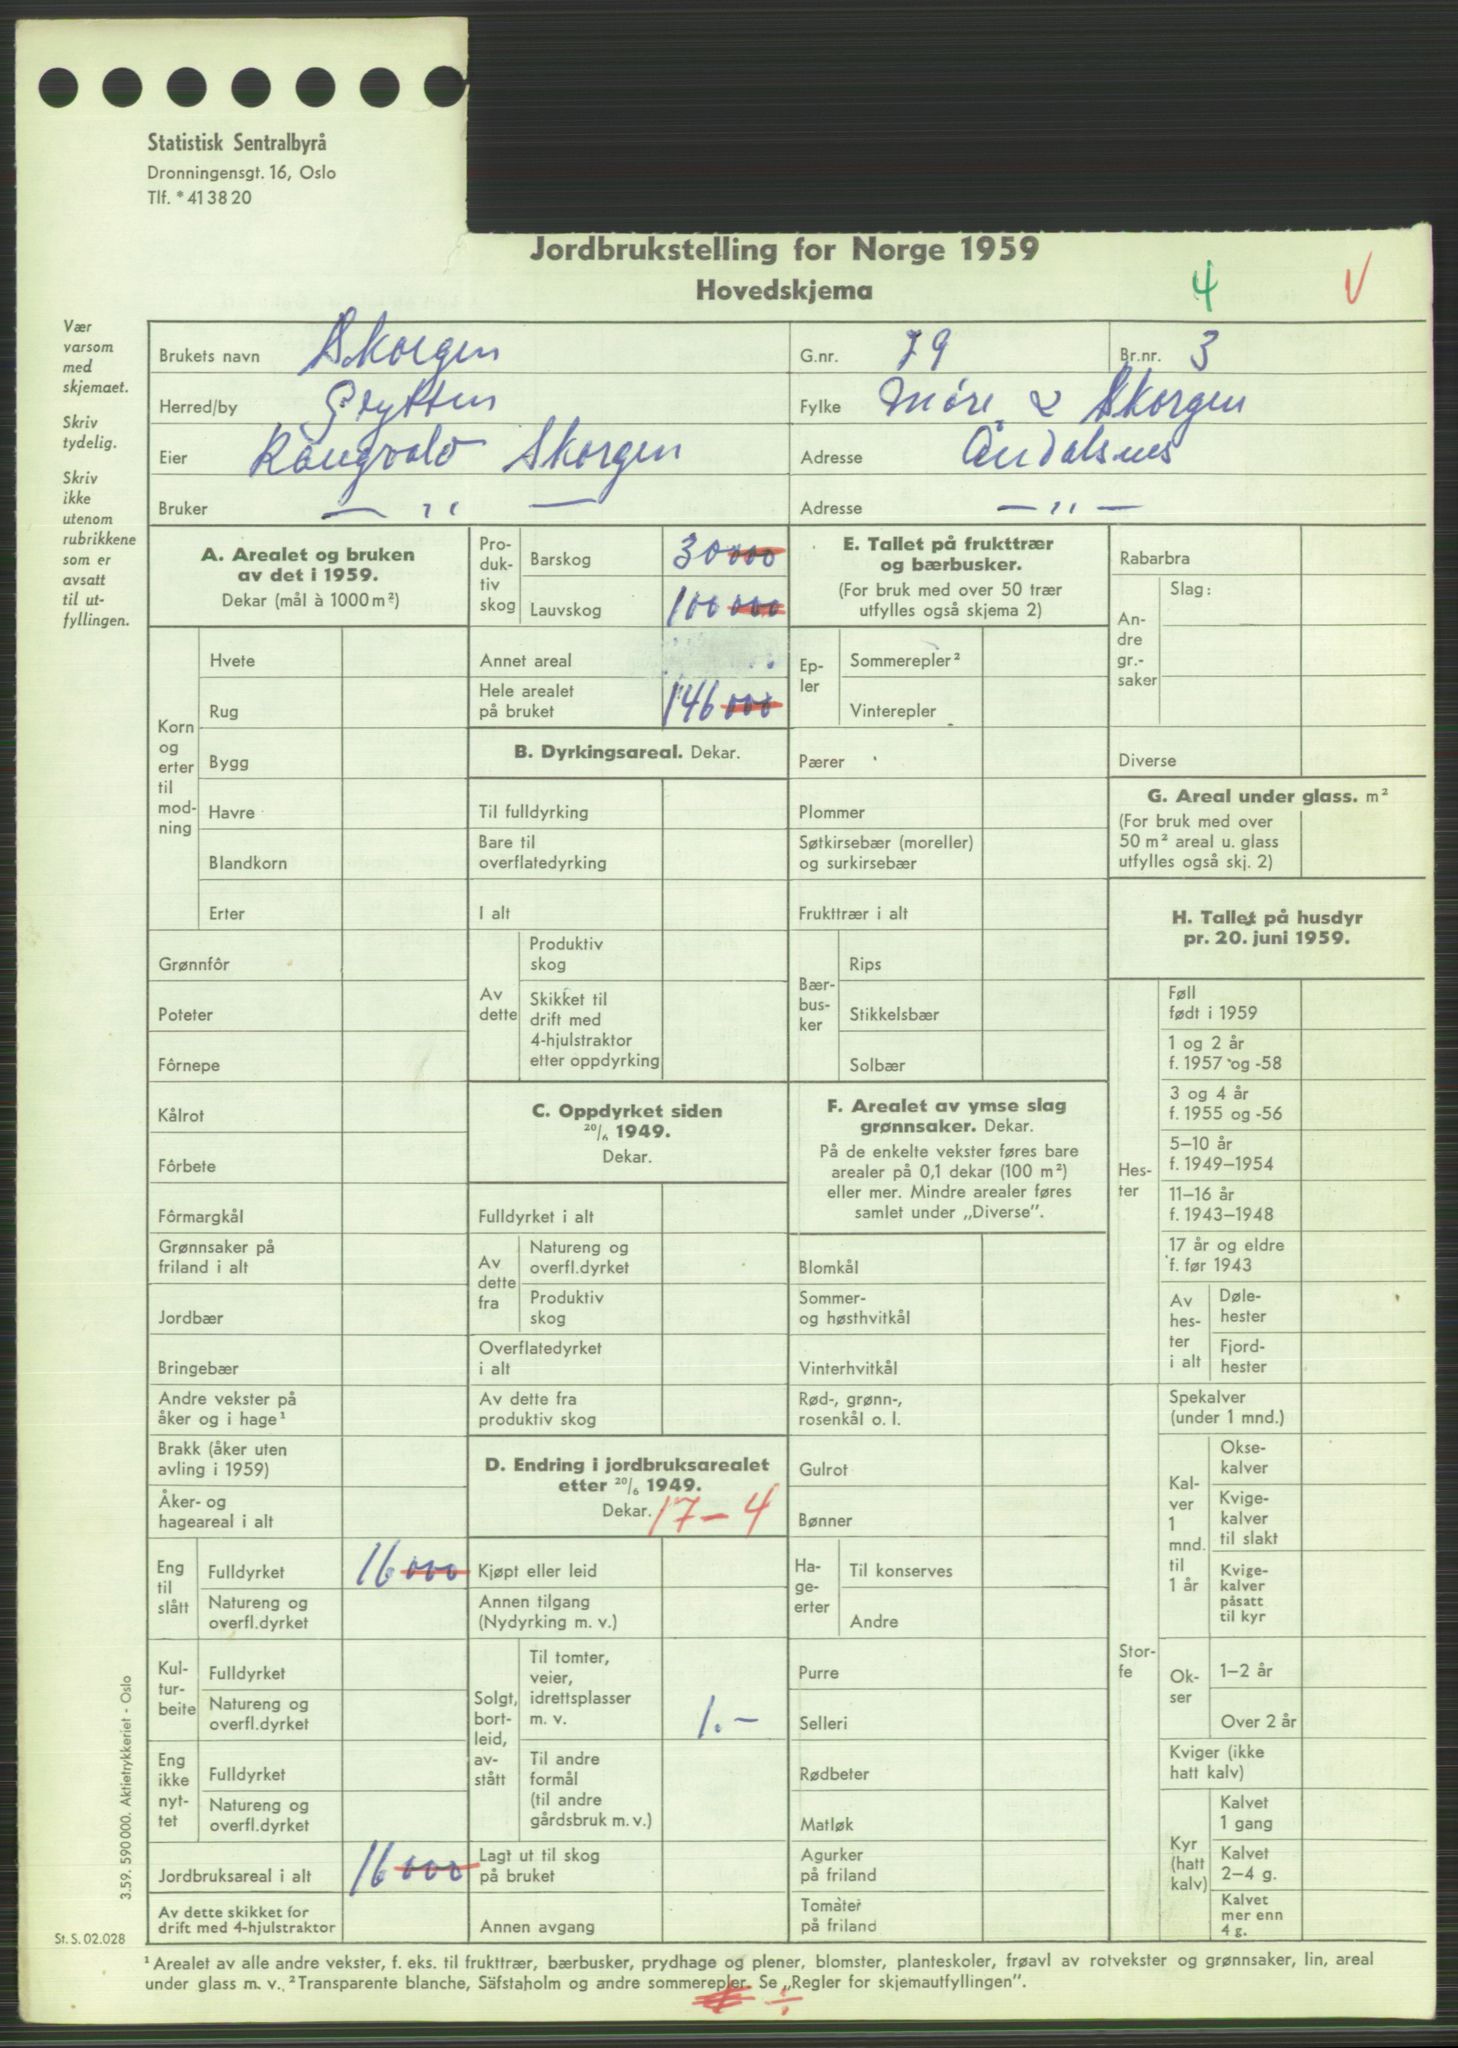 Statistisk Sentralbyrå
Dronningensgt. 16, Oslo
Tlf. * 41 38 20
Jordbrukstelling for Norge 1959
Hovedskjema
4
V
Vær
varsom
med
skjemaet.
Skriv
tydelig.
Skriv
ikke
utenom
rubrikkene
som er
avsatt
til ut-
fyllingen.
Brukets navn Skorgen
G.nr. 79
Br.nr. 3
Herred/by Grytten
Fylke Møre & Skorgen
Eier Rangvald Skorgen
Adresse Åndalsnes
Bruker — " —
Adresse — " —
A. Arealet og bruken
av det i 1959.
Dekar (mål à 1000 m²)
Korn
og
erter
til
mod-
ning
Hvete
Rug
Bygg
Havre
Blandkorn
Erter
Grønnfôr
Poteter
Fôrnepe
Kålrot
Fôrbete
Fôrmargkål
Grønnsaker på
friland i alt
Jordbær
Bringebær
Andre vekster på
åker og i hage¹
Brakk (åker uten
avling i 1959)
Åker- og
hageareal i alt
Eng
til
slått
Fulldyrket 16000
Natureng og
overfl.dyrket
Kul-
tur-
beite
Fulldyrket
Natureng og
overfl.dyrket
Eng
ikke
nyt-
tet
Fulldyrket
Natureng og
overfl.dyrket
Jordbruksareal i alt 16000
Av dette skikket for
drift med 4-hjulstraktor
Pro-
duk-
tiv
skog
Barskog 30000
Lauvskog 100000
Annet areal
Hele arealet
på bruket 146000
B. Dyrkingsareal. Dekar.
Til fulldyrking
Bare til
overflatedyrking
I alt
Av
dette
Produktiv
skog
Skikket til
drift med
4-hjulstraktor
etter oppdyrking
C. Oppdyrket siden
20/6 1949.
Dekar.
Fulldyrket i alt
Av
dette
fra
Natureng og
overfl.dyrket
Produktiv
skog
Overflatedyrket
i alt
Av dette fra
produktiv skog
D. Endring i jordbruksarealet
etter 20/6 1949.
Dekar. 17-4
Kjøpt eller leid
Annen tilgang
(Nydyrking m. v.)
Solgt,
bort-
leid,
av-
stått
Til tomter,
veier,
idrettsplasser
m. v. 1.-
Til andre
formål
(til andre
gårdsbruk m. v.)
Lagt ut til skog
på bruket
Annen avgang
E. Tallet på frukttrær
og bærbusker.
(For bruk med over 50 trær
utfylles også skjema 2)
Ep-
ler
Sommerepler²
Vinterepler
Pærer
Plommer
Søtkirsebær (moreller)
og surkirsebær
Frukttrær i alt
Bær-
bus-
ker
Rips
Stikkelsbær
Solbær
F. Arealet av ymse slag
grønnsaker. Dekar.
På de enkelte vekster føres bare
arealer på 0,1 dekar (100 m²)
eller mer. Mindre arealer føres
samlet under „Diverse”.
Blomkål
Sommer-
og høsthvitkål
Vinterhvitkål
Rød-, grønn-,
rosenkål o. l.
Gulrot
Bønner
Ha-
ge-
erter
Til konserves
Andre
Purre
Selleri
Rødbeter
Matløk
Agurker
på friland
Tomater
på friland
Rabarbra
An-
dre
gr.-
saker
Slag:
Diverse
G. Areal under glass. m²
(For bruk med over
50 m² areal u. glass
utfylles også skj. 2)
H. Tallet på husdyr
pr. 20. juni 1959.
Hes-
ter
Føll
født i 1959
1 og 2 år
f. 1957 og -58
3 og 4 år
f. 1955 og -56
5–10 år
f. 1949–1954
11–16 år
f. 1943–1948
17 år og eldre
f. før 1943
Av
hes-
ter
i alt
Døle-
hester
Fjord-
hester
Stor-
fe
Spekalver
(under 1 mnd.)
Kal-
ver
1
mnd.
til
1 år
Okse-
kalver
Kvige-
kalver
til slakt
Kvige-
kalver
påsatt
til kyr
Ok-
ser
1–2 år
Over 2 år
Kviger (ikke
hatt kalv)
Kyr
(hatt
kalv)
Kalvet
1 gang
Kalvet
2–4 g.
Kalvet
mer enn
4 g.
3.59. 590 000. Aktietrykkeriet - Oslo
St. S. 02.028
¹ Arealet av alle andre vekster, f. eks. til frukttrær, bærbusker, prydhage og plener, blomster, planteskoler, frøavl av rotvekster og grønnsaker, lin, areal
under glass m. v., ² Transparente blanche, Säfstaholm og andre sommerepler. Se „Regler for skjemautfyllingen”.